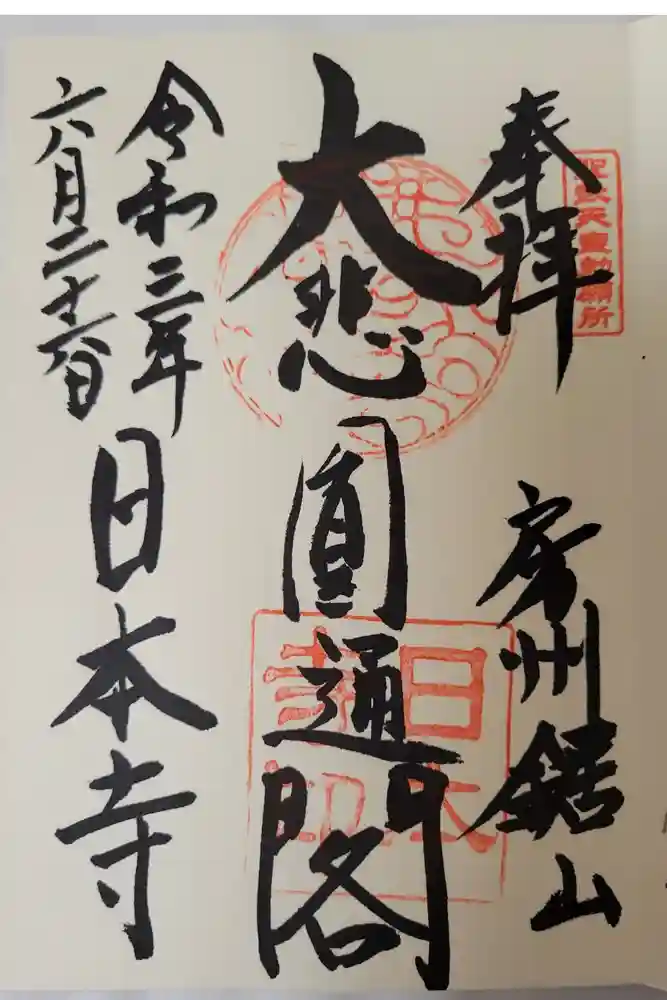 聖武天皇勅願所
奉拝
房州鋸山
大悲圓通閣
日本寺印
令和三年
六月二十六日
日本寺